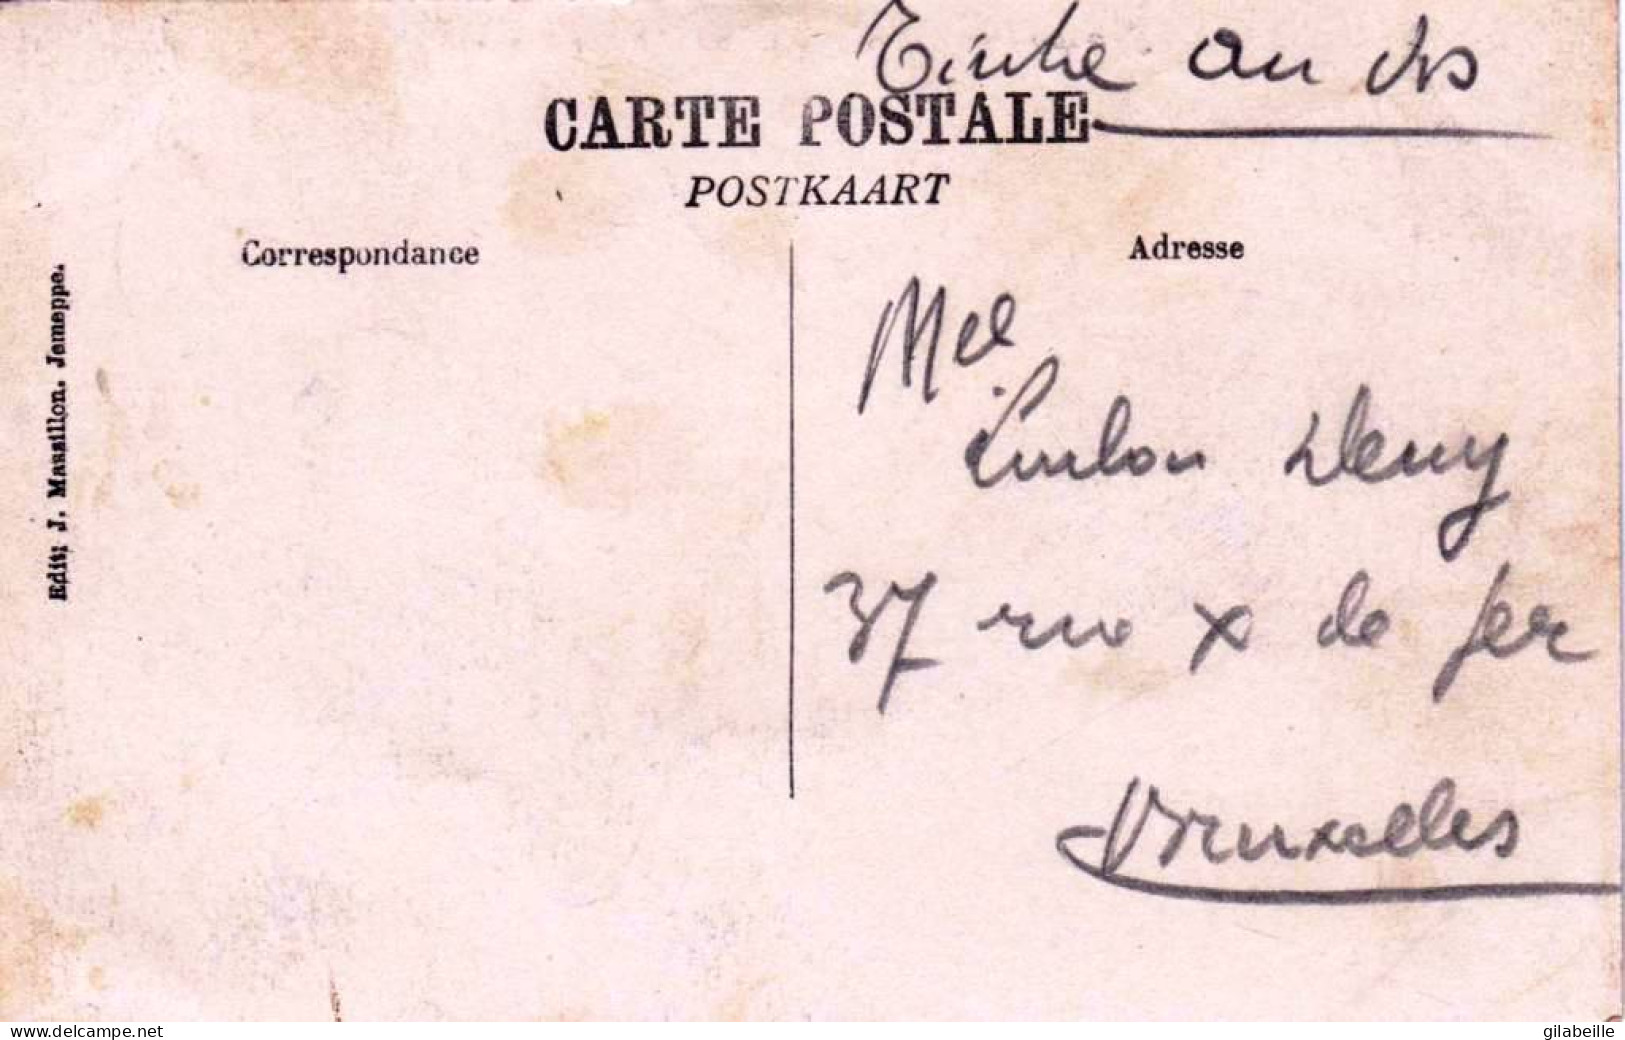 Timbre au dos
CARTE POSTALE
POSTKAART
Correspondance
Adresse
Edit; J. Massillon. Jemeppe.
Mel
37 rue x de fer
Bruxelles
www.delcampe.net
gilabeille